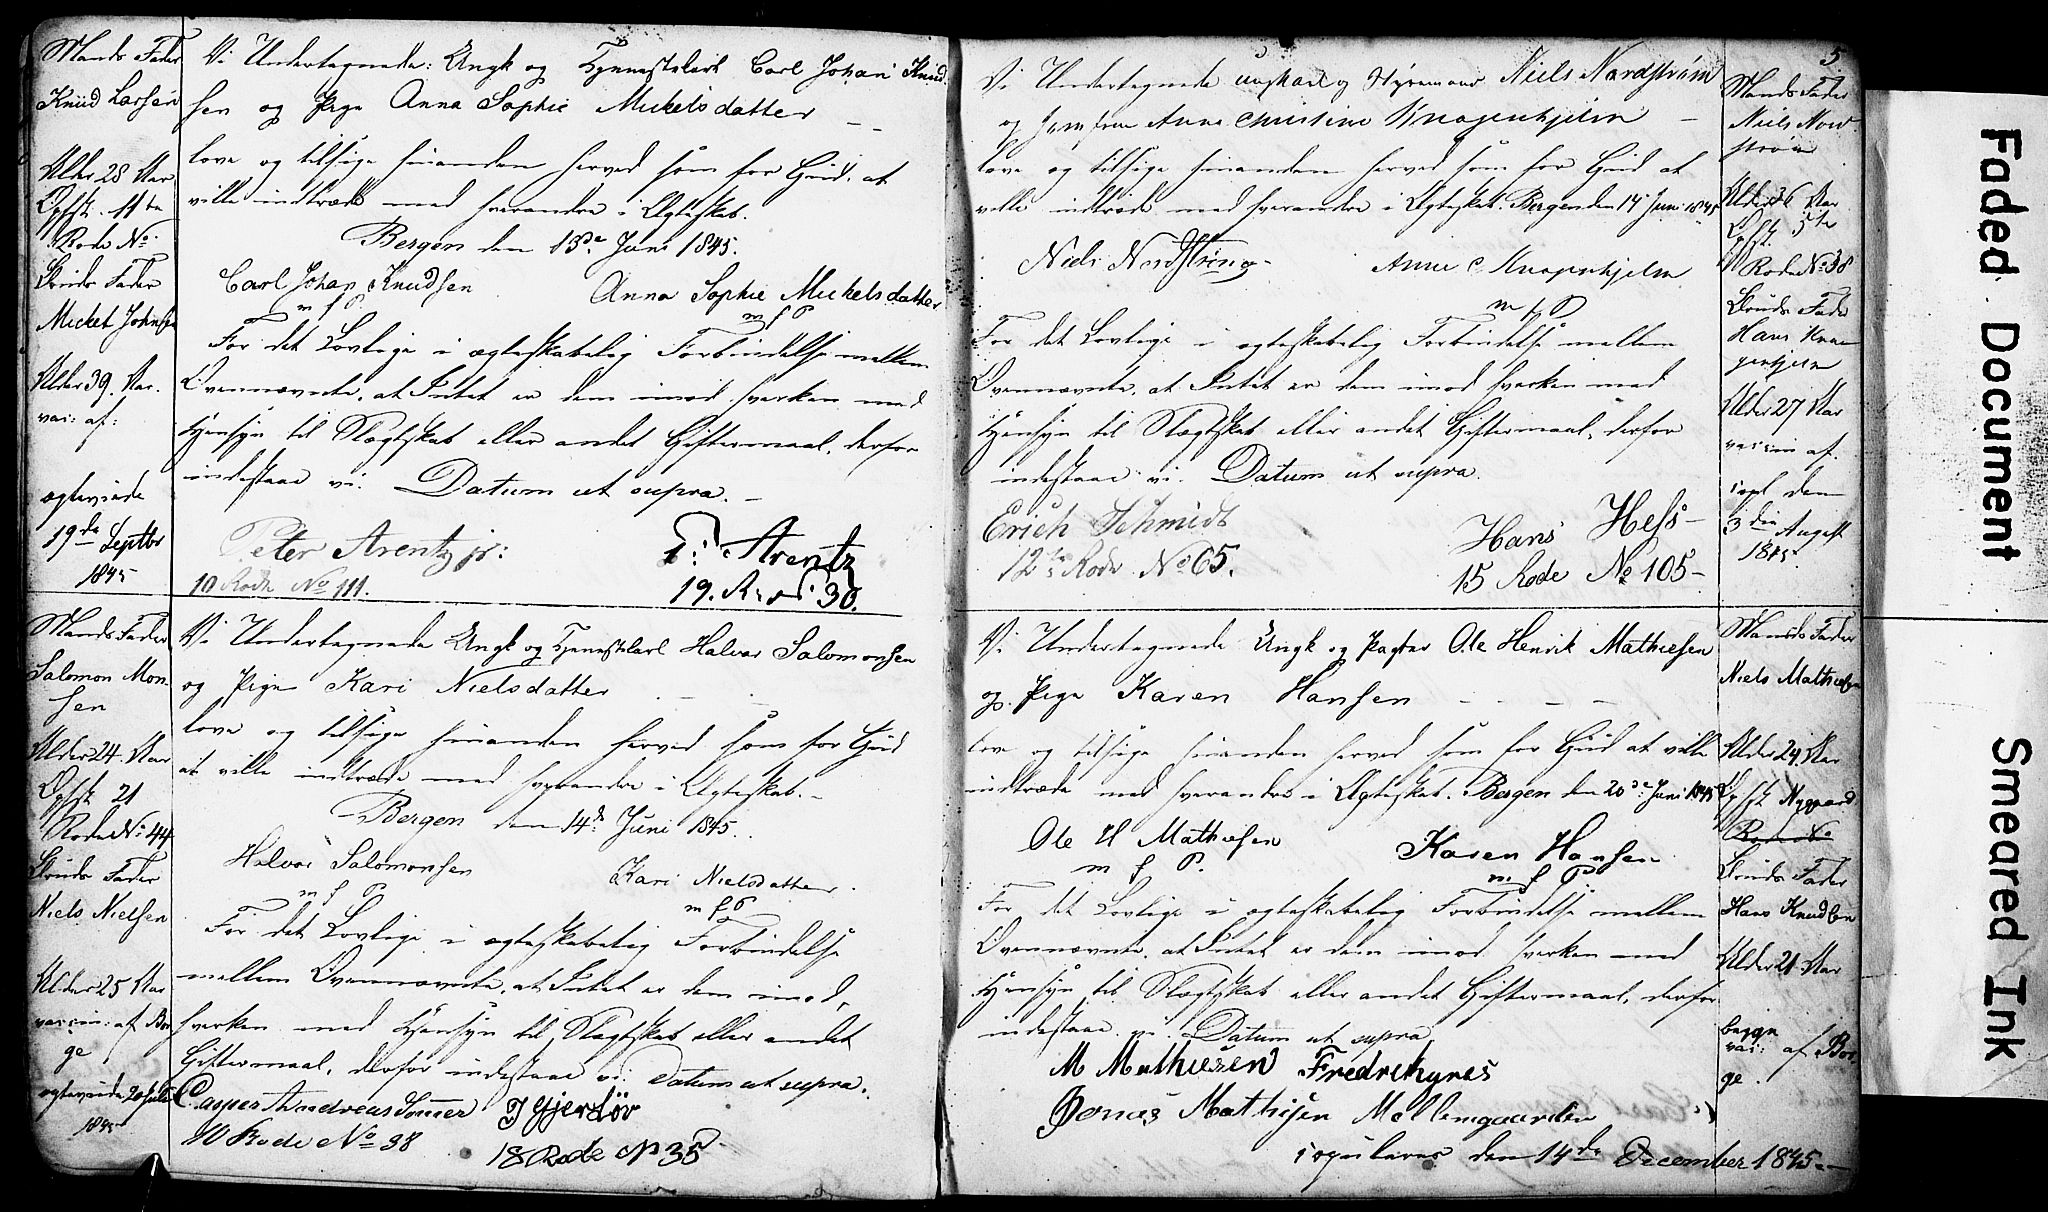 Mands Fader
Knud Larsen
Alder 28 Aar.
Opfst. 11te
Rode No.
Bruds Fader
Mickel Johnsen
Alder 39. Aar.
vac: af:
ægteviede
19de Septbr
1845
Vi Undertegnede: Ungk og Tjenestekarl Carl Johan Knud
sen og Pige Anna Sophie Mickelsdatter
love og tilsige hinanden herved som for Gud, at
ville indtræde med hverandre i Ægteskab.
Bergen den 13de Juni 1845.
Carl Johan Knudsen Anna Sophie Mickelsdatter
m f P. m f P
For det Lovlige i ægteskabelig Forbindelse mellem
Ovennævnte, at Intet er dem imod hverken med
Hensyn til Slægtskab eller andet Giftermaal, derfor
indestaae vi. Datum ut supra.
Peter Arentz jr: Arentz
10 Rode No 111. 19. Rode 30.
Mands Fader
Salomon Mon-
sen
Alder 24. Aar
Opfst. 21
Rode No 44
Bruds Fader
Niels Nielsen
Alder 25 Aar
vaccin: af Beg-
ge
ægteviede 20 Juli
1845
Vi Undertegnede Ungk og Tjenestekarl Halvor Salomonsen
og Pige Kari Nielsdatter
love og tilsige hinanden herved som for Gud
at ville indtræde med hverandre i Ægteskab.-
Bergen den 14de Juni 1845.
Halvor Salomonsen Kari Nielsdatter.
m f P m f P
For det Lovlige i ægteskabelig Forbindelse
mellem Ovennævnte, at Intet er dem imod,
hverken med Hensyn til Slægtskab eller andet
Giftermaal, derfor indestaae vi. Datum ut supra.
Casper Andreas Sømer J Gjerdøv
10 Rode No 38 18 Rode No 35
5
Vi Undertegnede ungkarl og Styrmand Niels Nordstrøm
og Jomfrue Anne Christine Knagenhjelm
love og tilsige hinanden herved som for Gud at
ville indtræde med hverandre i Ægteskab. Bergen den 14 Juni 1845
Niels Nordstrøm Anne C. Knagenhjelm
m f P
For det Lovlige i ægteskabelig Forbindelse mellem
Ovennævnte, at Intet er dem imod hverken med
Hensyn til Slægtskab eller andet Giftermaal, derfor
indestaae vi. Datum ut supra.
Erich Schmidt Hans Hess
12te Rode No 65. 15 Rode No 105
Mands Fader
Niels Nord-
strøm
Alder 36 Aar
Opfst. 5te
Rode No 38
Bruds Fader
Hans Kna-
genhjelm
Alder 27 Aar
vaccin af.
copl. den
3die August
1845.
Vi Undertegnede Ungk og Pagter Ole Henrik Mathiesen
og Pige Karen Hansen
love og tilsige hinanden herved som for Gud at ville
indtræde med hverandre i Ægteskab. Bergen den 20de Juni 1845
Ole H Mathiesen Karen Hansen
m f P. m f P
For det Lovlige i ægteskabelig Forbindelse mellem
Ovennævnte, at Intet er dem imod hverken med
Hensyn til Slægtskab eller andet Giftermaal, derfor
indestaae vi. Datum ut supra
M Mathiesen Fredrchynes
Mathisen Mollemgaarden
copuleres den 14de December 1845.-
Mands Fader
Niels Mathiesen
Alder 24. Aar
Opfst Nygaard
Rode No
Bruds Fader
Hans Knudsen
Alder 21. Aar
begge
vac: af Beg-
ge.
Faded Document
Smeared Ink